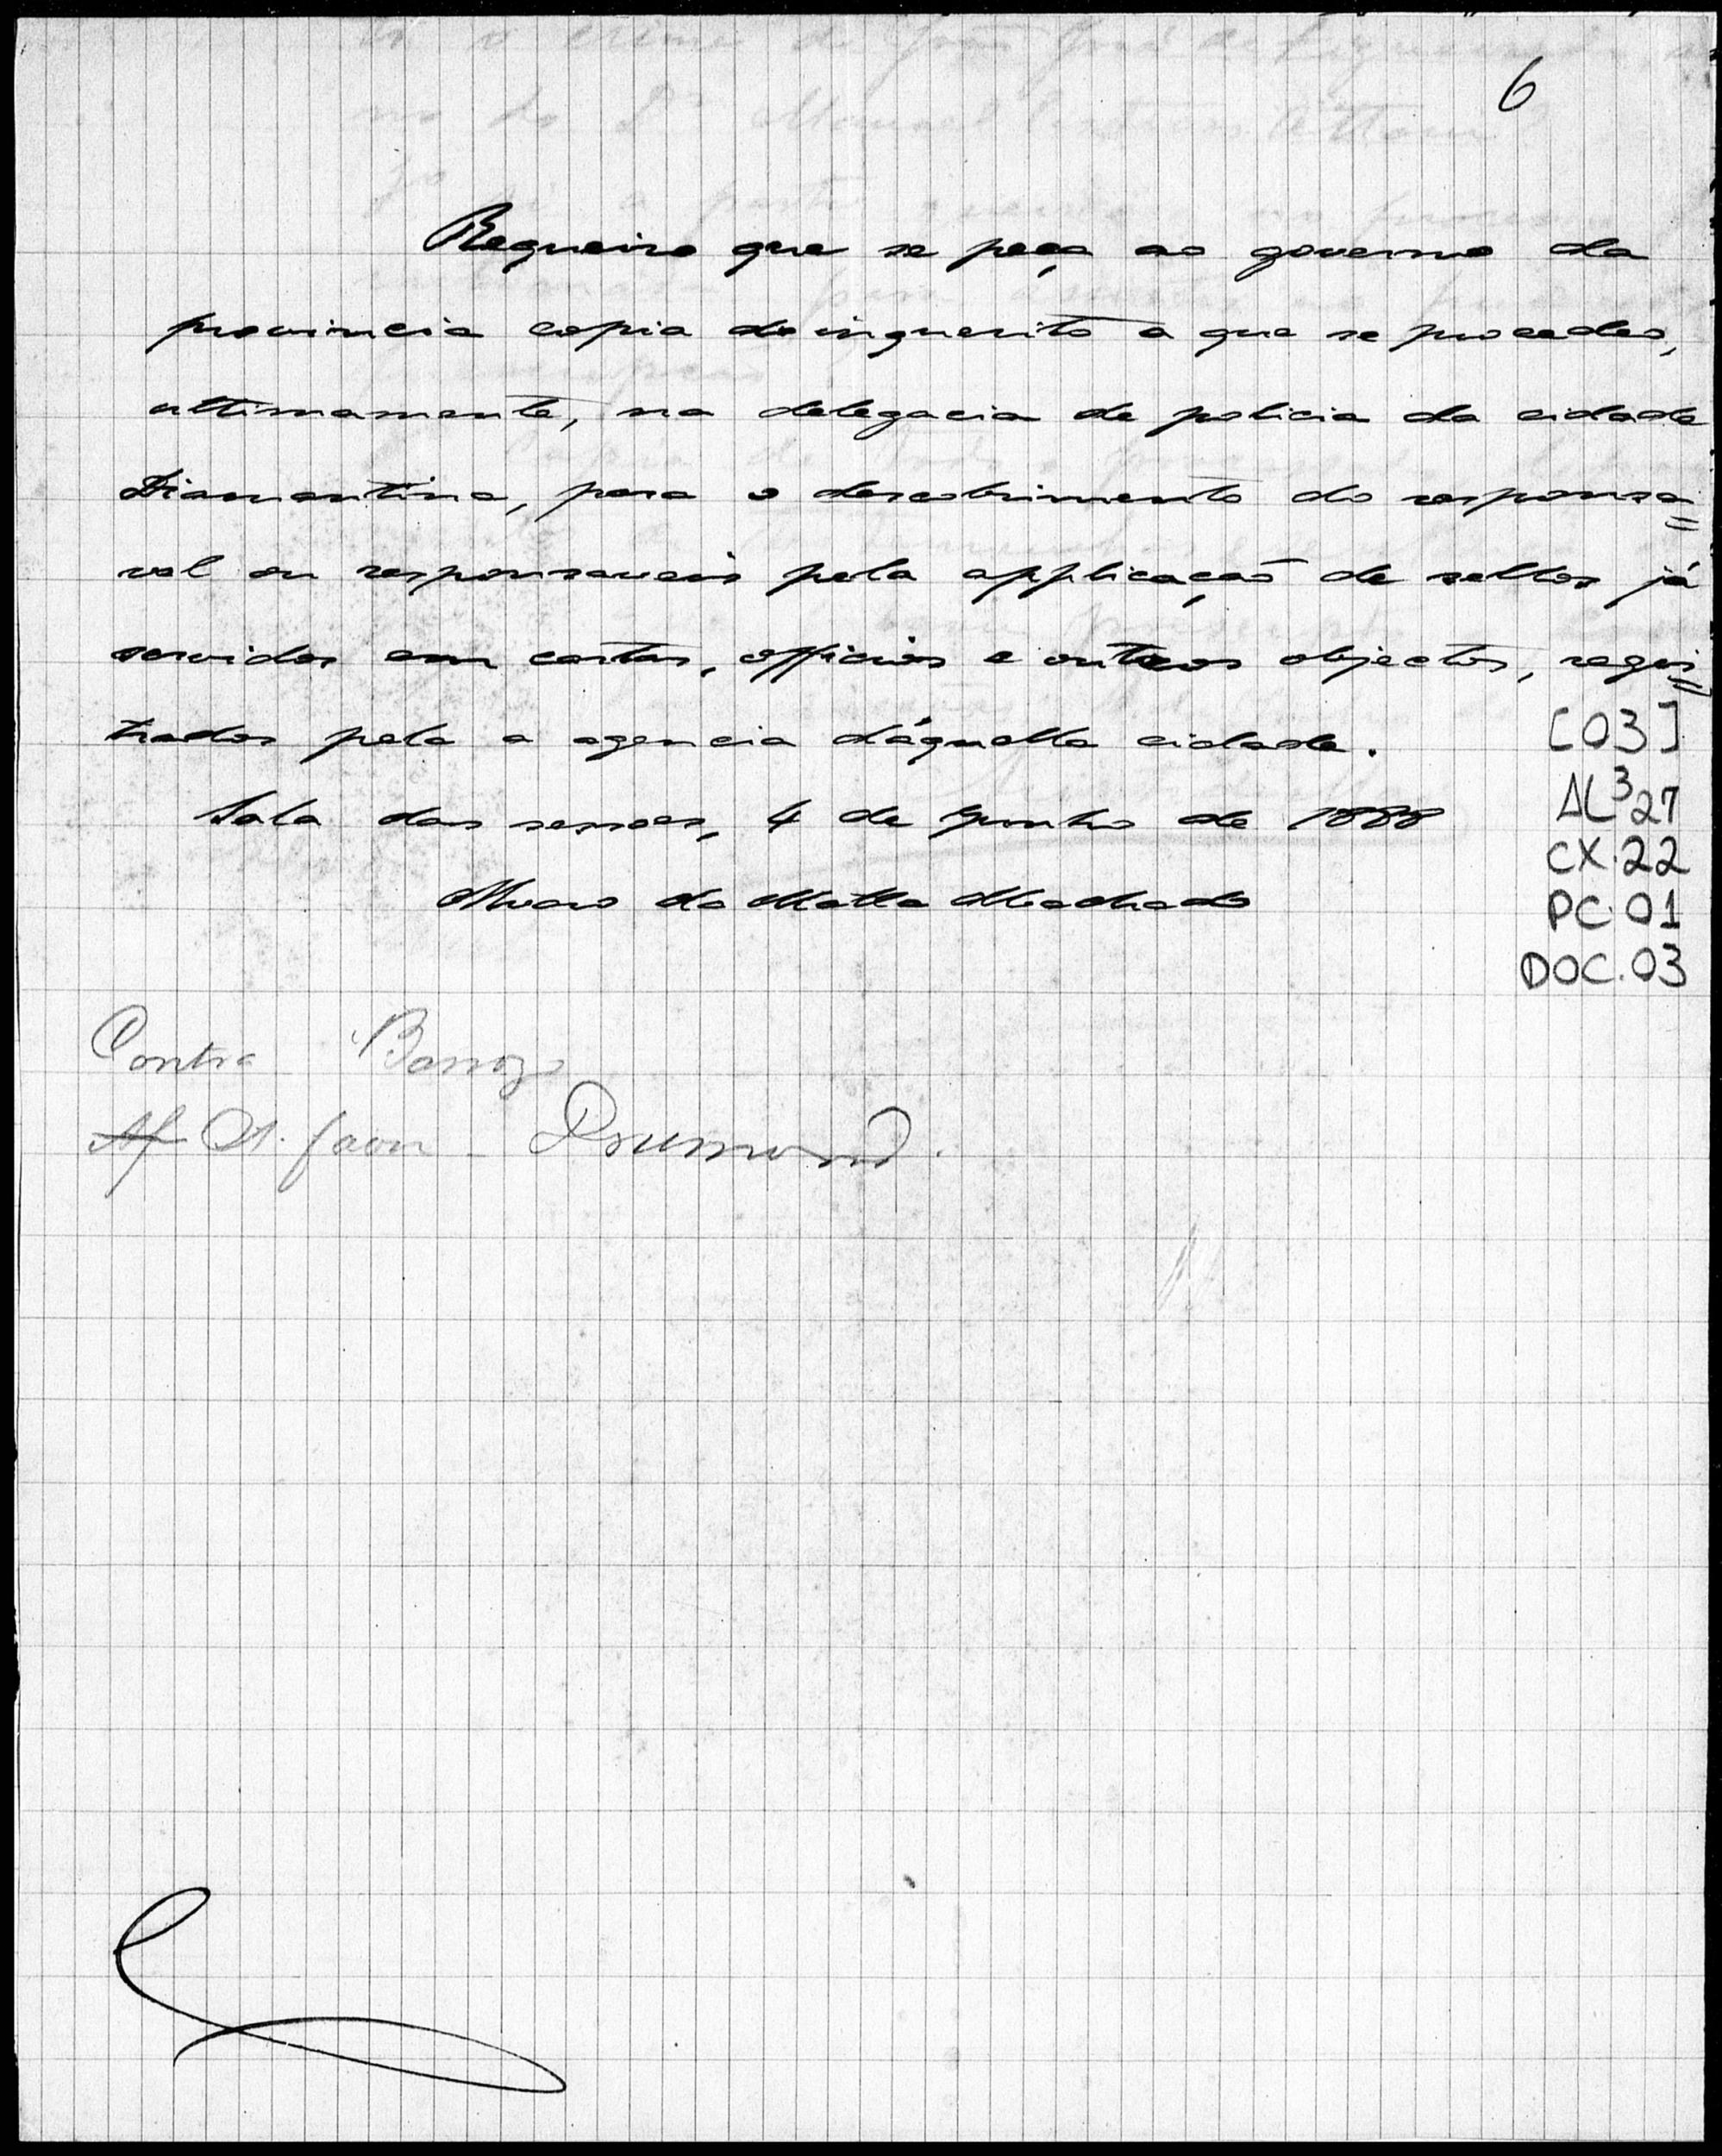 6
Requeiro que se peça ao governo da
provincia copia do inquerito a que se procedeo,
ultimamente, na delegacia de policia da cidade
Diamantina, para o descobrimento do responsa=
vel ou responsaveis pela applicação de sellos já
servidos em cartas, officios e outros objectos, regis=
trados pela a agencia d'áquella cidade.
Sala das sessoes, 4 de Junho de 1888
Alvaro da Matta Machado
[03]
AL³27
CX.22
PC.01
DOC.03
Contra Barroz
Af A. favor - Drumond.